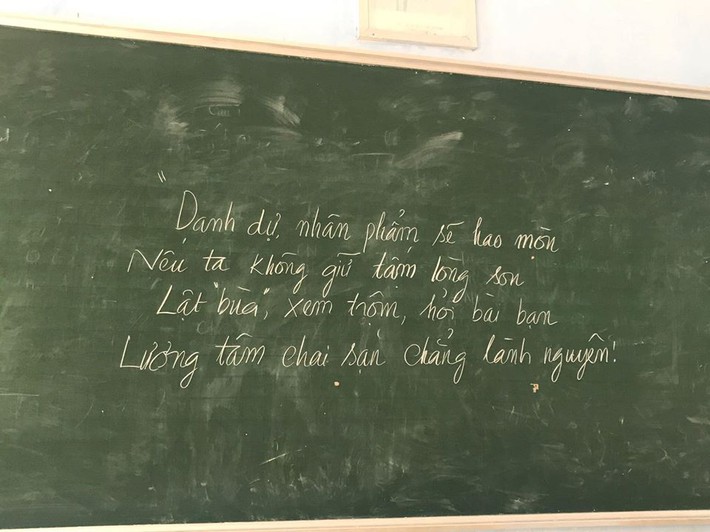 "Danh dự, nhân phẩm sẽ hao mòn
Nếu ta không giữ tấm lòng son
Lật "bùa", xem trộm, hỏi bài bạn
Lương tâm chai sạn chẳng lành nguyên!